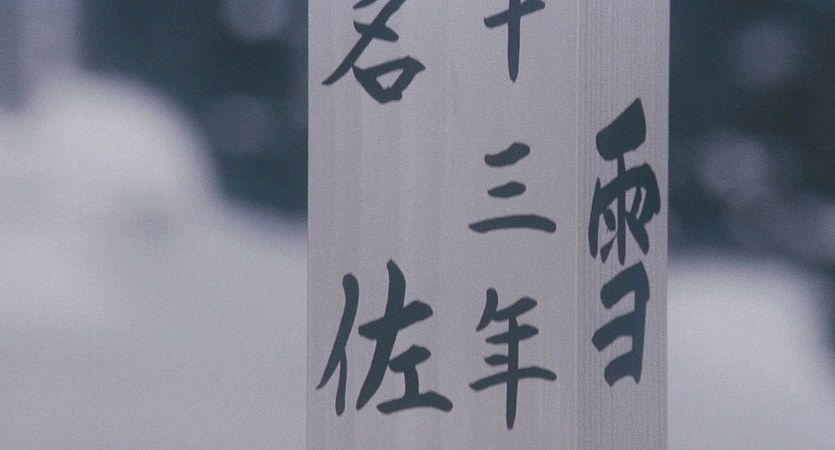 雪
十三年
名佐